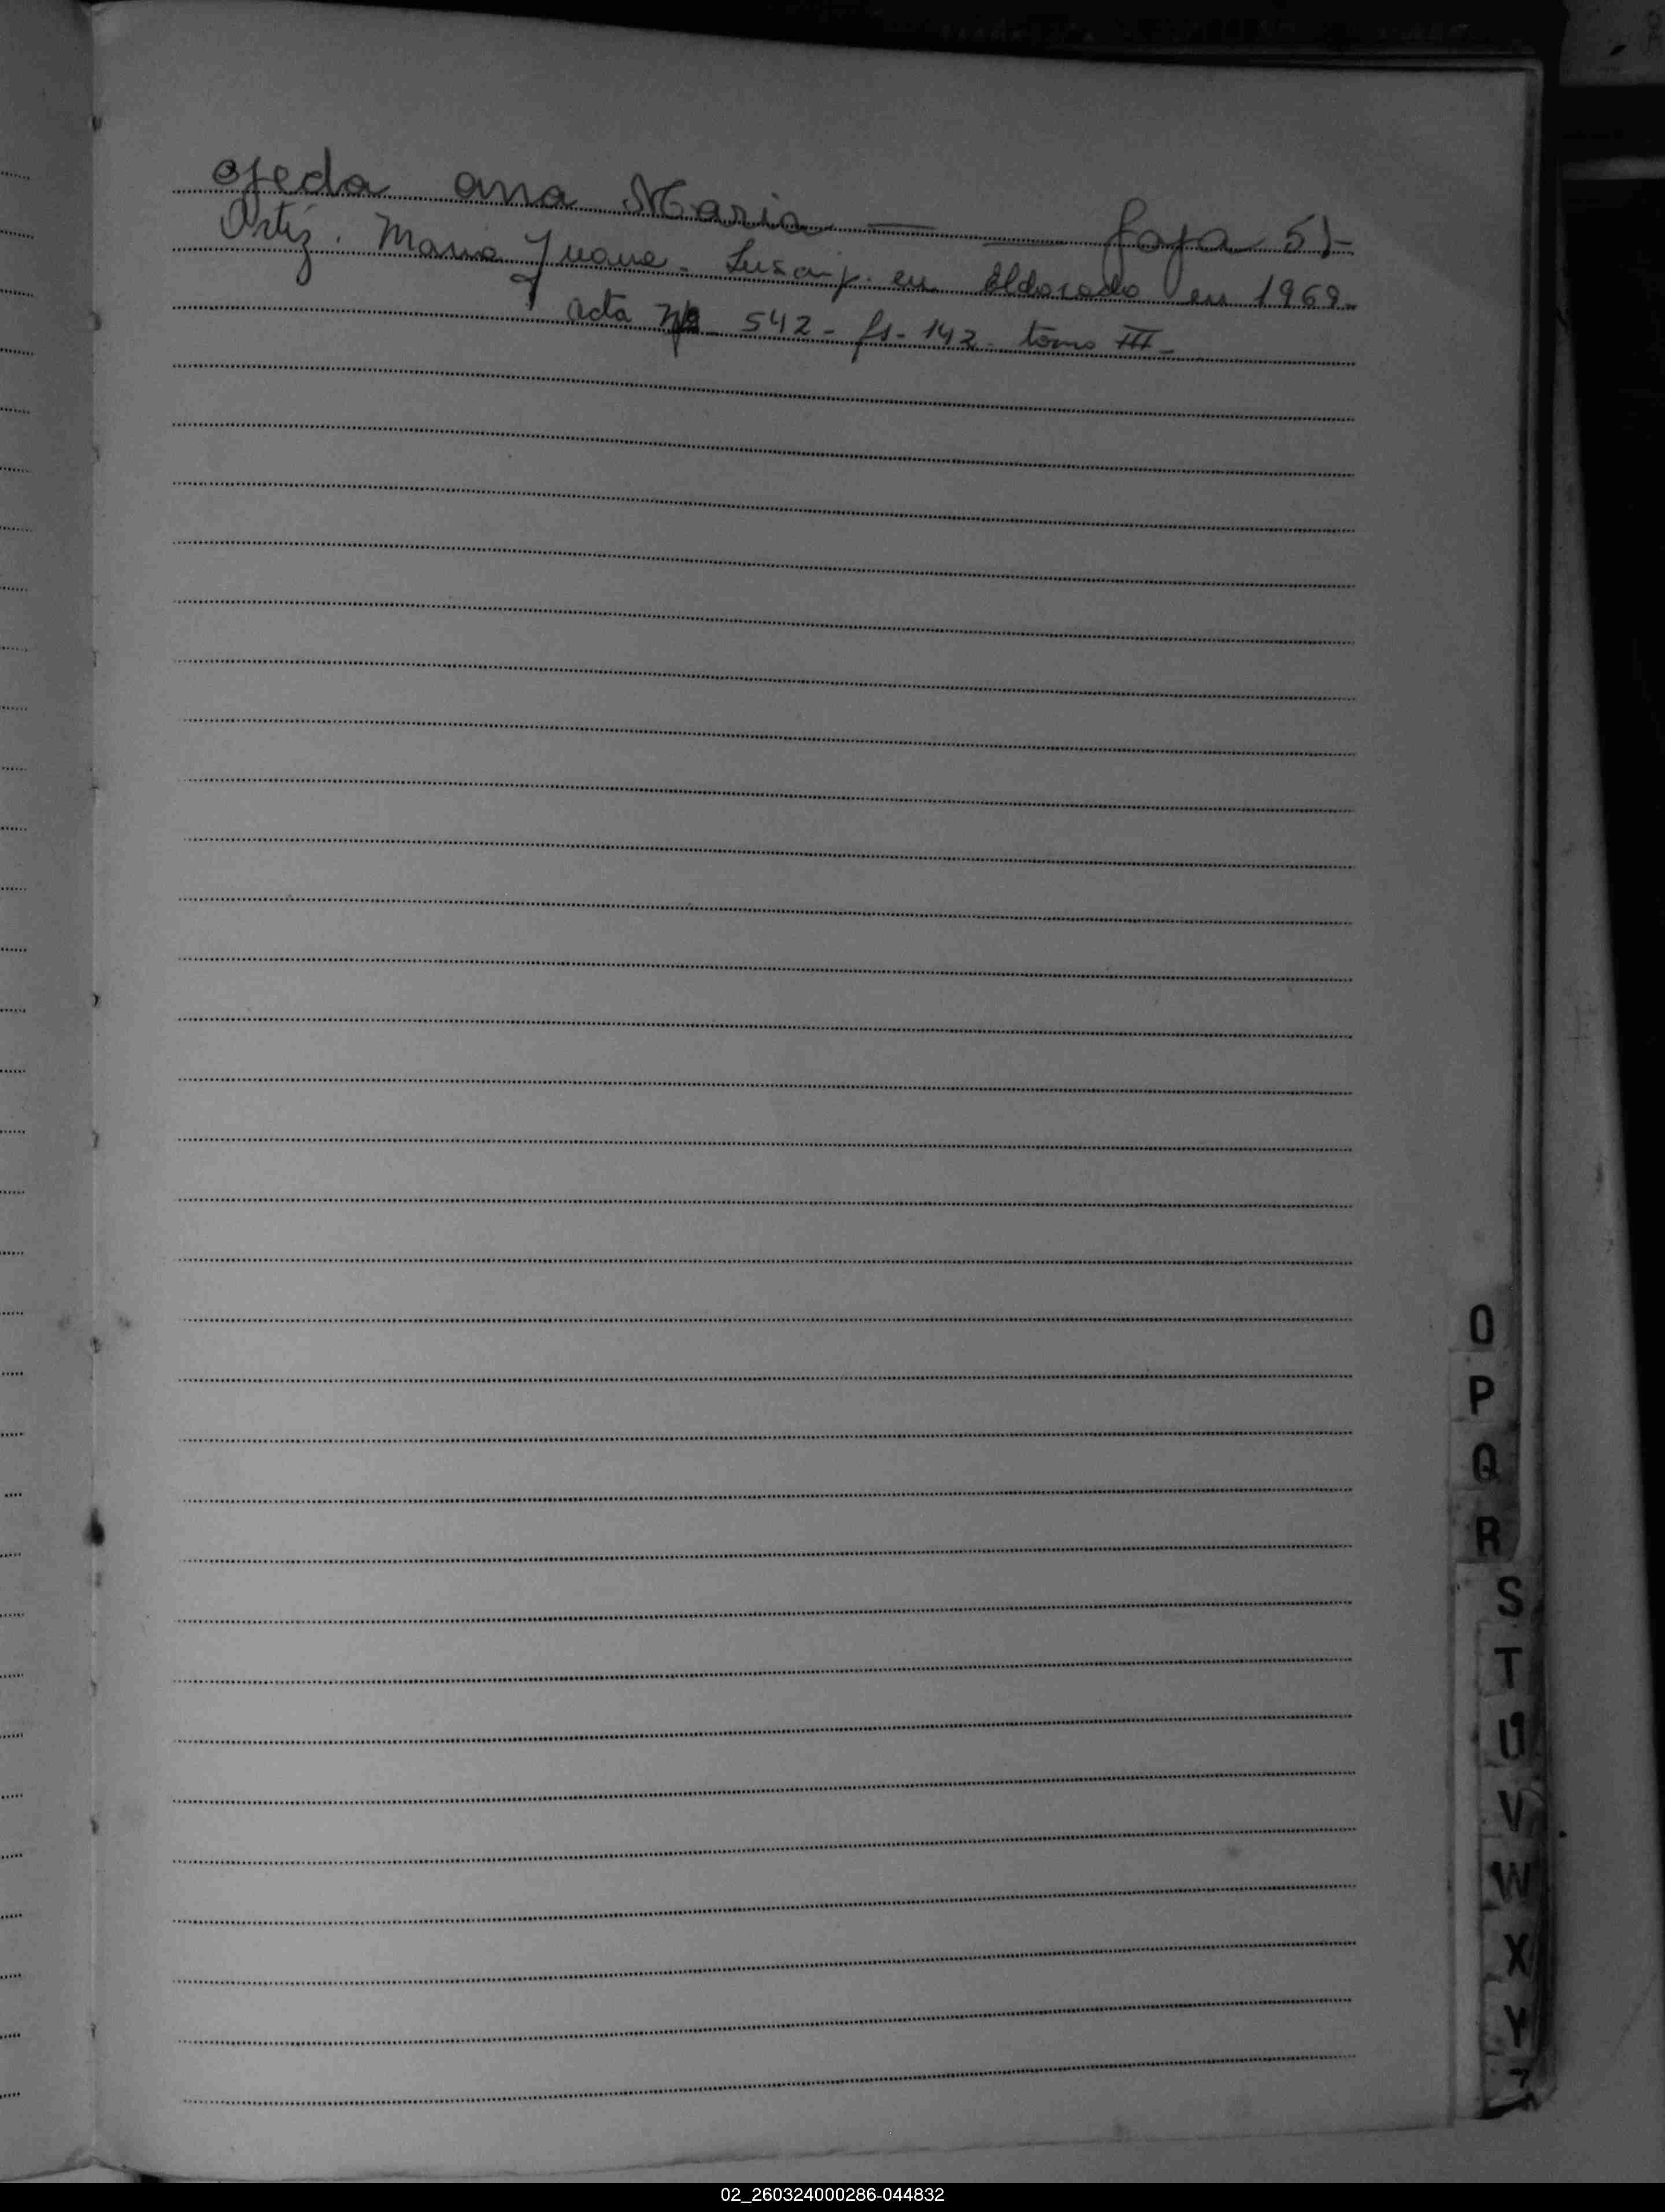 ojeda ana Maria — — foja 51-
Ortiz. Maria Juana - Inscrip. en Eldorado en 1969-
acta Nº 542 - fs - 142 - tomo III -
O
P
Q
R
S
T
U
V
W
X
Y
Z
02_260324000286-044832